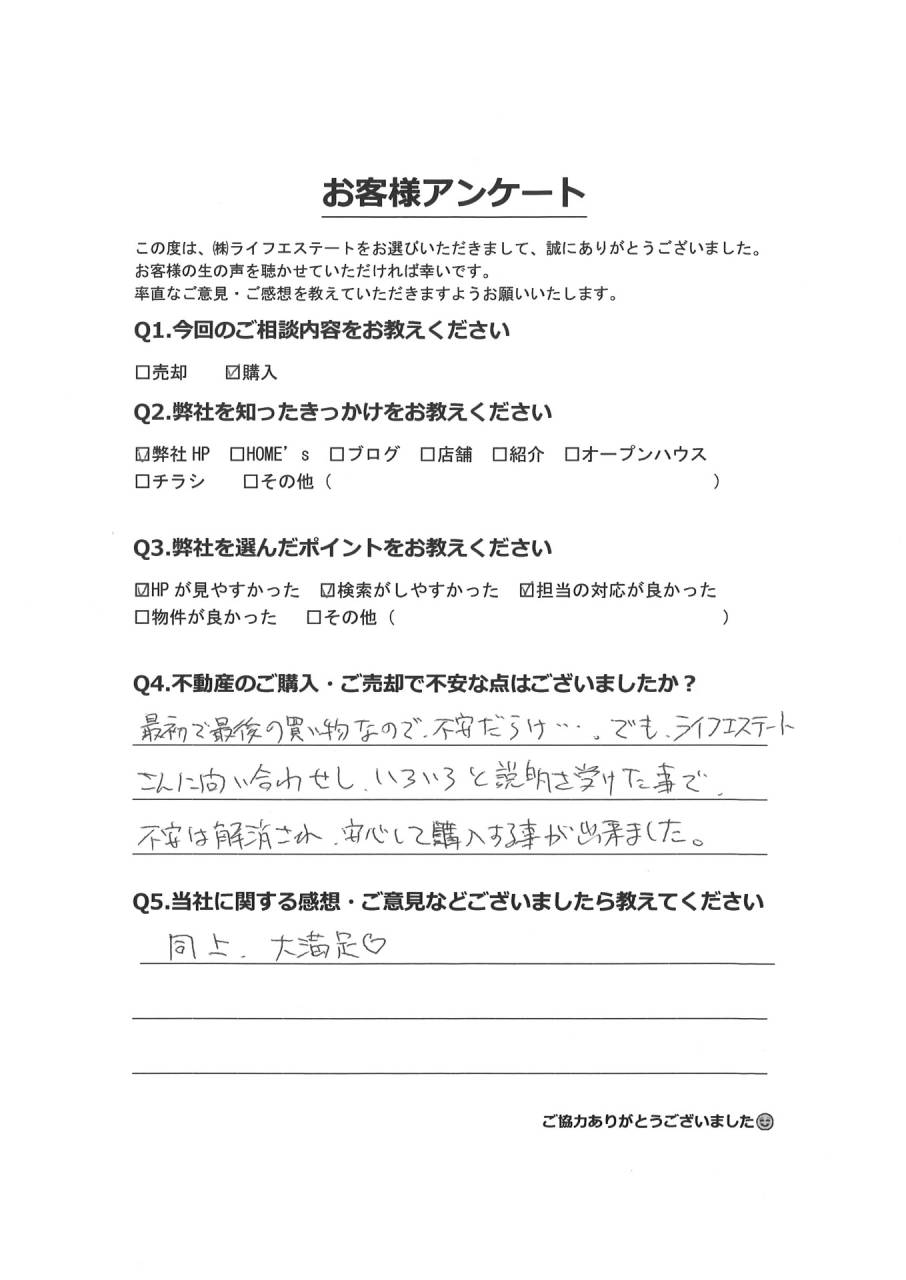 お客様アンケート
この度は、㈱ライフエステートをお選びいただきまして、誠にありがとうございました。
お客様の生の声を聴かせていただければ幸いです。
率直なご意見・ご感想を教えていただきますようお願いいたします。
Q1.今回のご相談内容をお教えください
□売却 ☑購入
Q2.弊社を知ったきっかけをお教えください
☑弊社HP □HOME's □ブログ □店舗 □紹介 □オープンハウス
□チラシ □その他（ ）
Q3.弊社を選んだポイントをお教えください
☑HPが見やすかった ☑検索がしやすかった ☑担当の対応が良かった
□物件が良かった □その他（ ）
Q4.不動産のご購入・ご売却で不安な点はございましたか？
最初で最後の買い物なので、不安だらけ…。でも、ライフエステート
さんに問い合わせし、いろいろと説明を受けた事で、
不安は解消され、安心して購入する事が出来ました。
Q5.当社に関する感想・ご意見などございましたら教えてください
同上、大満足♡
ご協力ありがとうございました😊